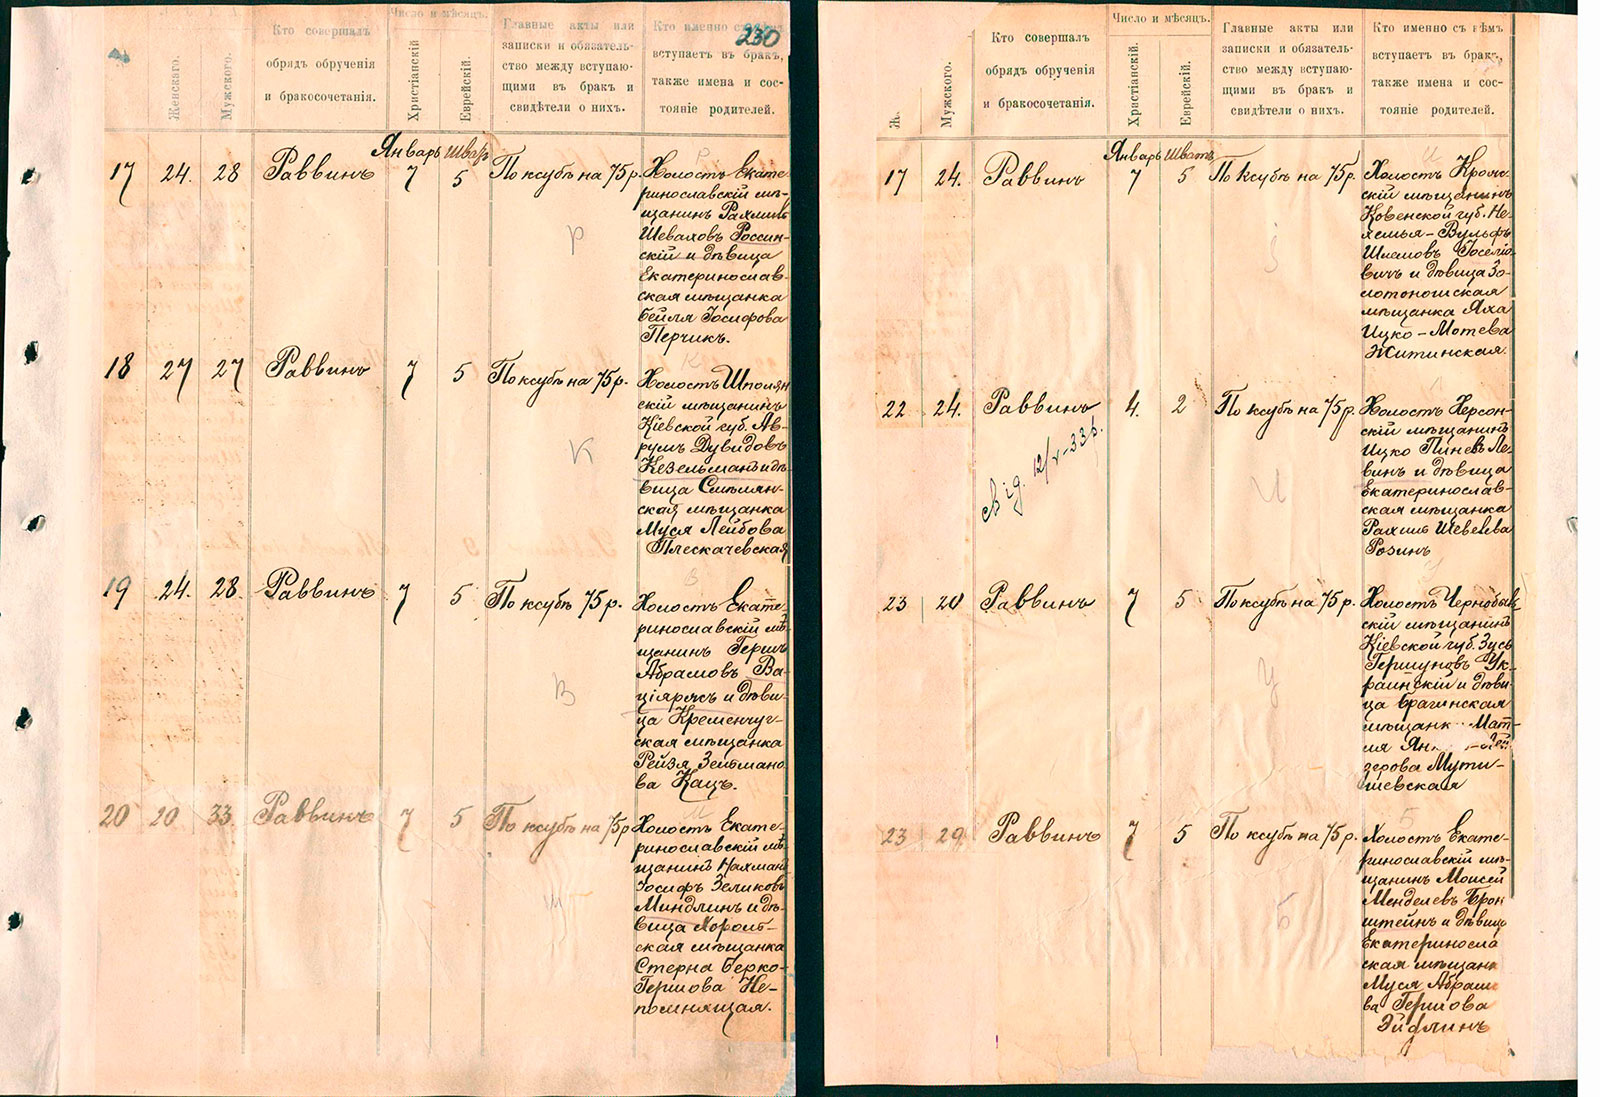 230
№
Женскаго.
Мужского.
Кто совершалъ
обрядъ обрученія
и бракосочетанія.
Число и мѣсяцъ.
Христіанскій
Еврейскій.
Главные акты или
записки и обязатель-
ство между вступаю-
щими въ бракъ и
свидѣтели о нихъ.
Кто именно съ кѣмъ
вступаетъ въ бракъ,
также имена и сос-
тояніе родителей.
Январь Шватъ
17 24. 28 Раввинъ 7 5 По ксубѣ на 75 р.
Холостъ Екате-
ринославскій мѣ-
щанинъ Рахмиль
Шеваховъ Россин-
скій и дѣвица
Екатеринослав-
ская мѣщанка
Бейля Іосифова
Перчикъ.
Р
18 27 27 Раввинъ 7 5 По ксубѣ на 75 р.
Холостъ Шполян-
скій мѣщанинъ
Кіевской губ. Ав-
румъ Дувидовъ
Кезельманъ и дѣ-
вица Смѣлян-
ская мѣщанка
Муся Лейбова
Плескачевская
К
19 24. 28. Раввинъ 7 5 По ксубѣ 75 р.
Холостъ Екате-
ринославскій мѣ-
щанинъ Гершъ
Абрамовъ Ва-
ціяржъ и дѣви-
ца Кременчуг-
ская мѣщанка
Рейзя Зельмано-
ва Кацъ.
В
20 20 33. Раввинъ 7 5 По ксубѣ на 75 р
Холостъ Екате-
ринославскій мѣ-
щанинъ Нахманъ
Іосифъ Зеликовъ
Миндлинъ и дѣ-
вица Хороль-
ская мѣщанка
Стерна Берко-
Гершова Не-
помнящая.
Ж.
Мужского.
Кто совершалъ
обрядъ обрученія
и бракосочетанія.
Число и мѣсяцъ.
Христіанскій
Еврейскій.
Главные акты или
записки и обязатель-
ство между вступаю-
щими въ бракъ и
свидѣтели о нихъ.
Кто именно съ кѣмъ
вступаетъ въ бракъ,
также имена и сос-
тояніе родителей.
Январь Шватъ
17 24. Раввинъ 7 5 По ксубѣ на 75 р.
Холостъ
скій мѣщанинъ
Ковенской губ. Не-
хемья-Вульфъ
Шламовъ Іоселіо-
вичъ и дѣвица Зо-
лотоношская
мѣщанка Яха
Ицко-Мотева
Житинская.
22 24. Раввинъ 4. 2 По ксубѣ на 75 р.
свід. 12/V-33 р.
Холостъ Херсон-
скій мѣщанинъ
Ицко Пиневъ Ле-
винъ и дѣвица
Екатеринослав-
ская мѣщанка
Рахиль Шевелева
Розинъ
И
23 20 Раввинъ 7 5 По ксубѣ на 75 р.
Холостъ Чернобыль-
скій мѣщанинъ
Кіевской губ. Зусь
Гершуновъ Ук-
раинскій и дѣви-
ца Брагинская
мѣщанк

зерова Мути-
шевская
У
23 29. Раввинъ 7 5 По ксубѣ на 75 р.
Холостъ Екате-
ринославскій мѣ-
щанинъ Моисей
Менделевъ Брон
штейнъ и дѣвица
Екатериносла
ская мѣщанк
Муся Абрамо-
ва Гершова
Эйдлинъ
Б